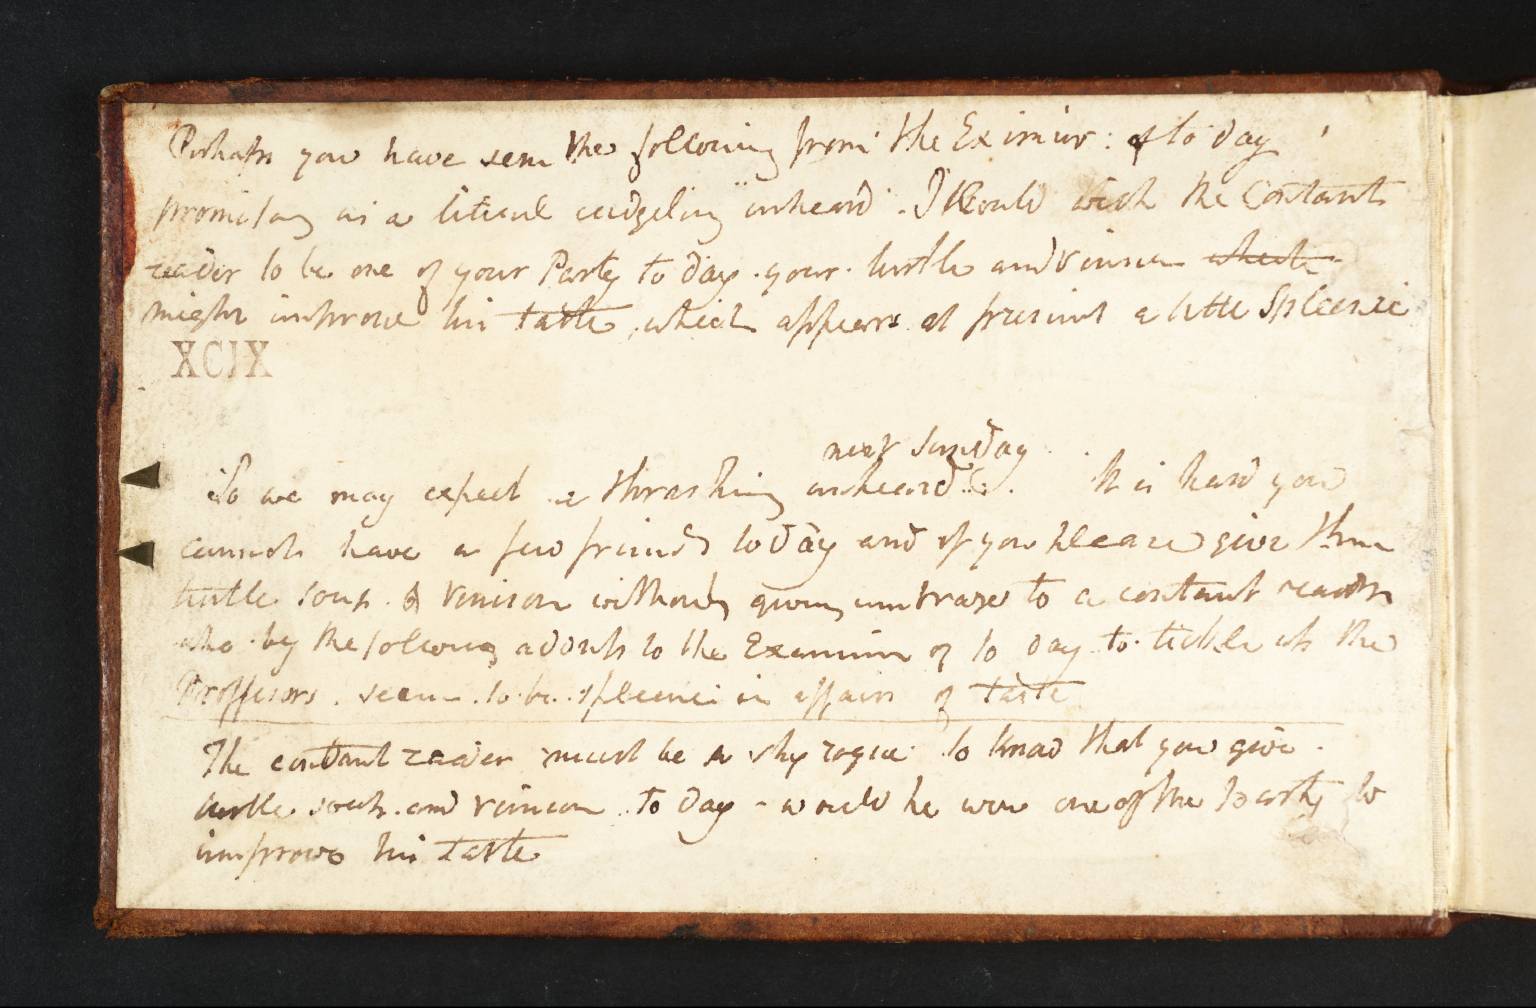 Perhaps you have seen the following from the Eximiner: of to day
promising us a litteral cudgeling unheard. I Would wish the Constant
reader to be one of your Party to day. your. turtle and Vinson which
might improve his taste, which appears at present a little Spleenic
XCIX
next Sunday
So we may expect a thrashing unheard. It is hard you
cannot have a few friends to day and if you please give them
turtle soup. & Venison without giving umbrage to a constant reader
who by the following adords to the Examiner of to day. to. tickle up the
Proffesors. seems. to. be. spleenic in affairs of taste
The constant reader must be a shy rogue. to know that you give.
turtle soup. and venison. to day - would he were one of the Party to
improve his taste